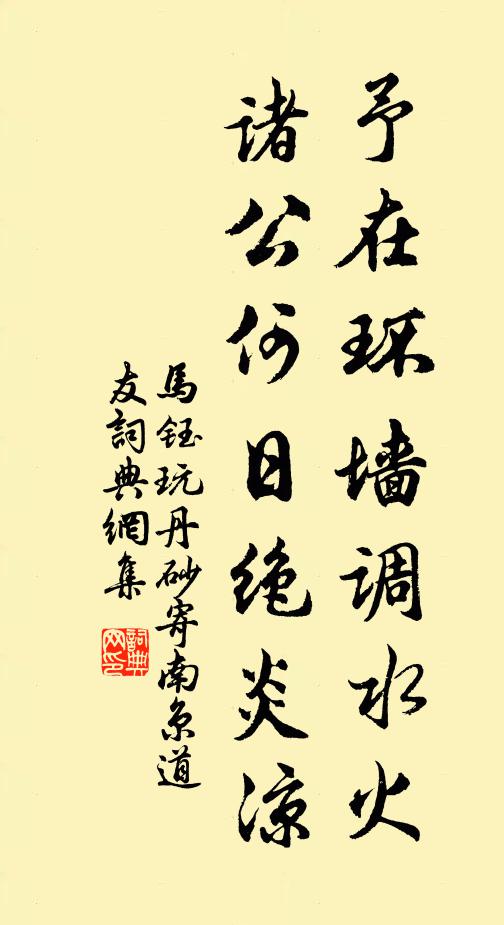 予在环墙调水火
诸公何日绝炎凉
馬鈺玩丹砂寄南京道
友詞典網集
詞典网印